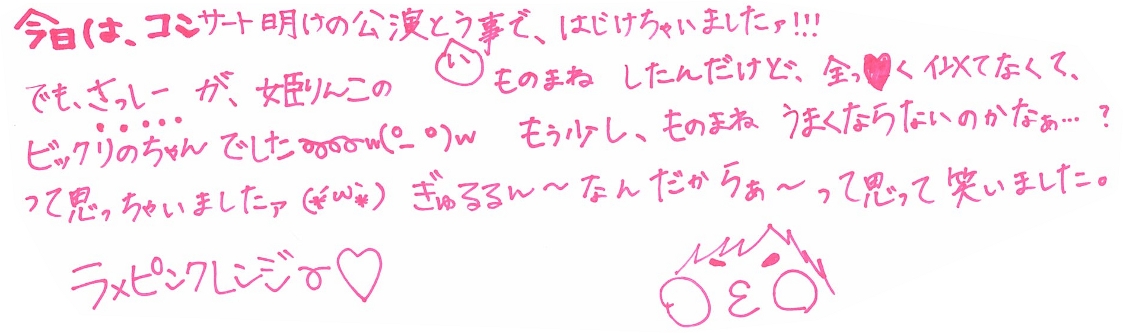 今日は、コンサート明けの公演とう事で、はじけちゃいましたァ!!!
でも、さっしーが、姫りんこの ものまね したんだけど、全っ♥く似てなくて、
ビックリのちゃんでしたwww(°_°)w もう少し、ものまね うまくならないのかなぁ…?
って思っちゃいましたァ(*´ω`*) ぎゅるるん〜なんだからぁ〜って思って笑いました。
ラメピンクレンジャー♡